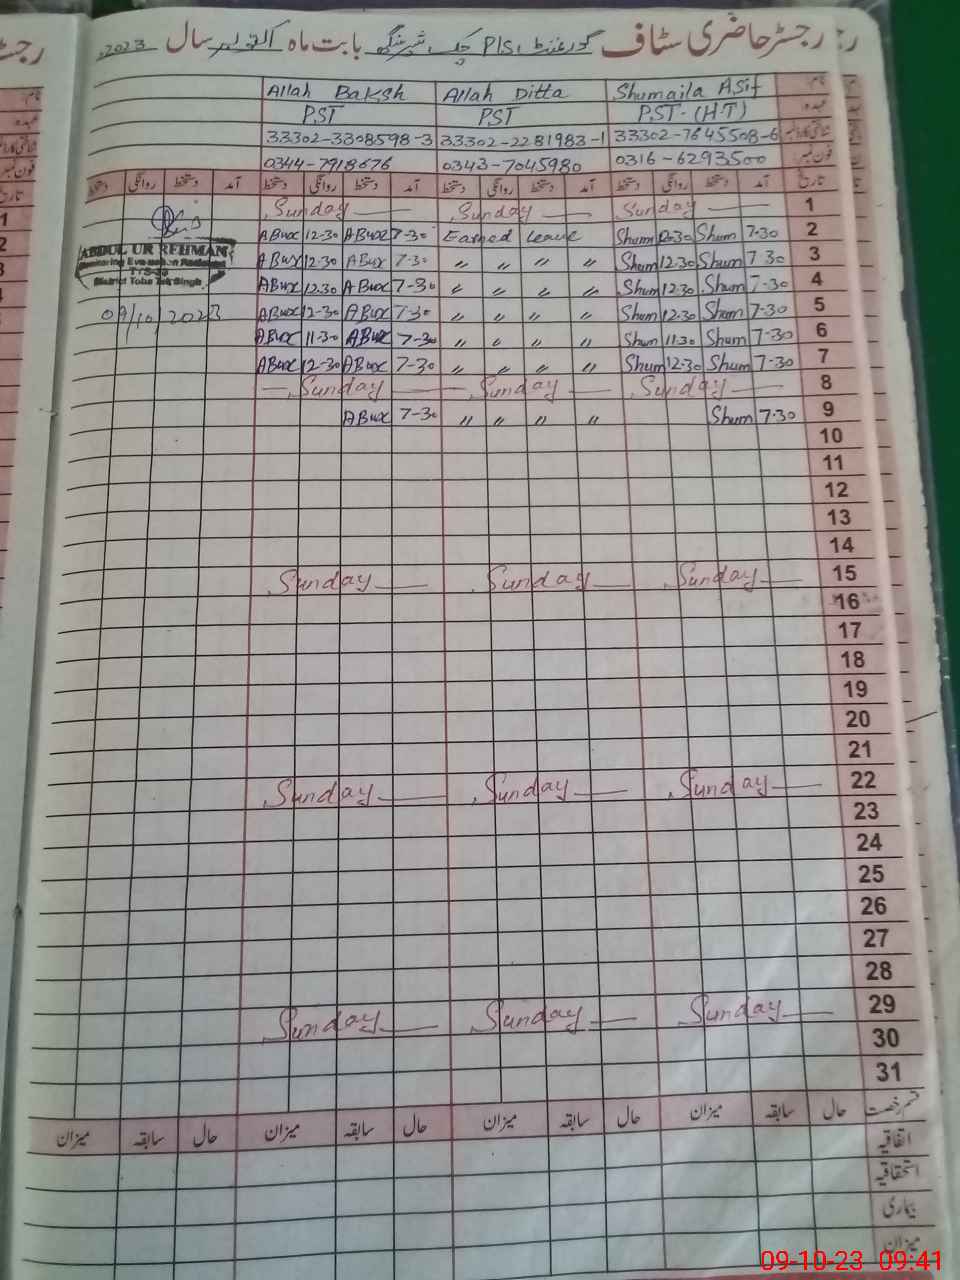 رجسٹر حاضری سٹاف گورنمنٹ PIS، چک بابت ماہ اکتوبر سال 2023
نام: Shumaila Asif Allah Ditta Allah Baksh
عہدہ PST-(H-T) PST PST
شناختی کارڈ نمبر 33302-7645508-6 33302-2281983-1 33302-3308598-3
فون نمبر: 0316-6293500 0343-7045980 0344-7918676
تاریخ آمد دستخط روانگی دستخط آمد دستخط روانگی دستخط آمد دستخط روانگی دستخط آمد دستخط روانگی دستخط
1 Sunday Sunday Sunday
2 7-30 Shum 12-30 Shum Earned Leave 7-30 ABux 12-30 ABux
3 7-30 Shum 12-30 Shum " " " " 7-30 ABux 12-30 ABux
4 7-30 Shum 12-30 Shum " " " " 7-30 ABux 12-30 ABux
5 7-30 Shum 12-30 Shum " " " " 7-30 ABux 12-30 ABux
6 7-30 Shum 11-30 Shum " " " " 7-30 ABux 11-30 ABux
7 7-30 Shum 12-30 Shum " " " " 7-30 ABux 12-30 ABux
8 Sunday Sunday Sunday
9 7-30 Shum " " " " 7-30 ABux
10
11
12
13
14
15 Sunday Sunday Sunday
16
17
18
19
20
21
22 Sunday Sunday Sunday
23
24
25
26
27
28
29 Sunday Sunday Sunday
30
31
ABDUL UR REHMAN
District Toba Tek Singh
09/10/2023
قسم رخصت حال سابقہ میزان حال سابقہ میزان حال سابقہ میزان حال سابقہ میزان
اتفاقیہ
استحقاقیہ
بیماری
میزان
09-10-23 09:41